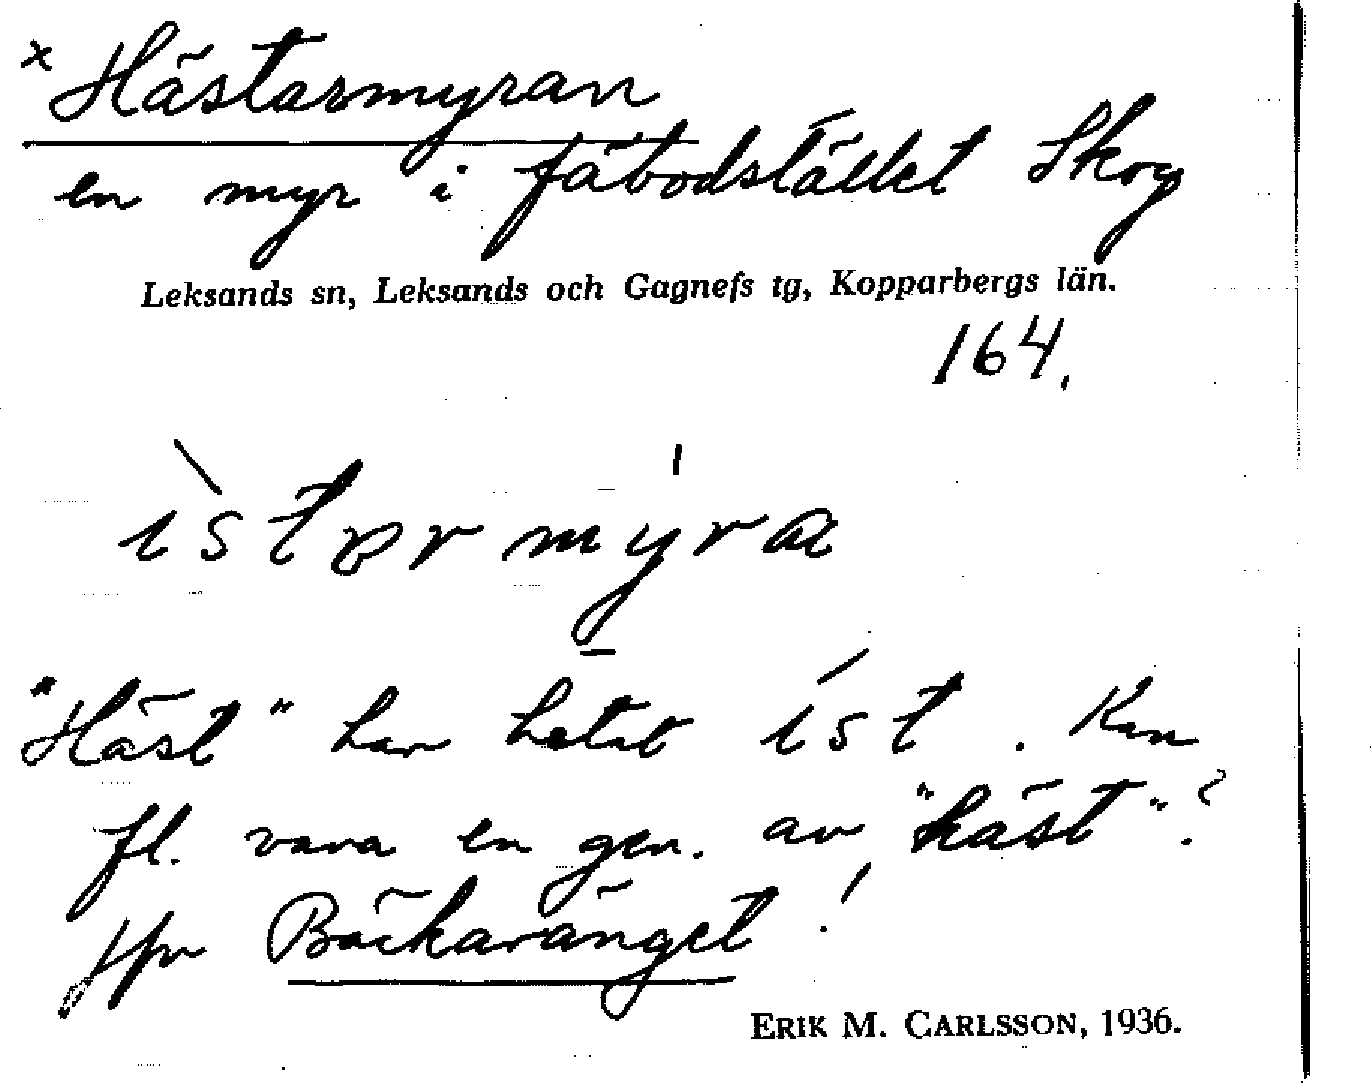 x Hästarmyran
en myr i fäbodstället Skog
Leksands sn, Leksands och Gagnefs tg, Kopparbergs län.
164.
ìstɒrmyra
"Häst" har hetat íst. Kan
fl. vara en gen. av "häst"?
Jfr Bäckaränget!
ERIK M. CARLSSON, 1936.